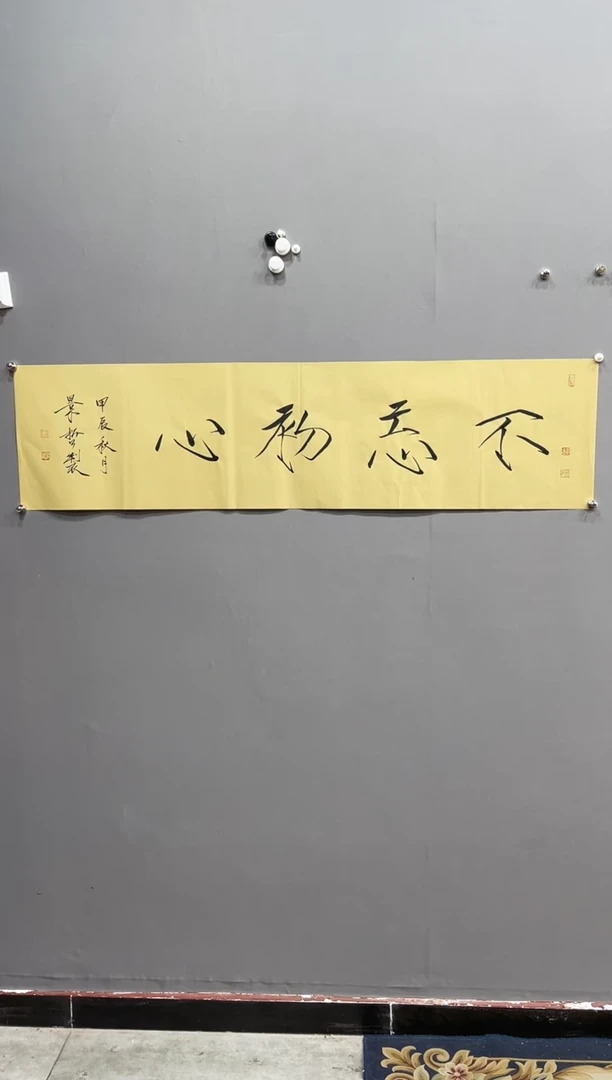 不忘初心
甲辰秋月
製